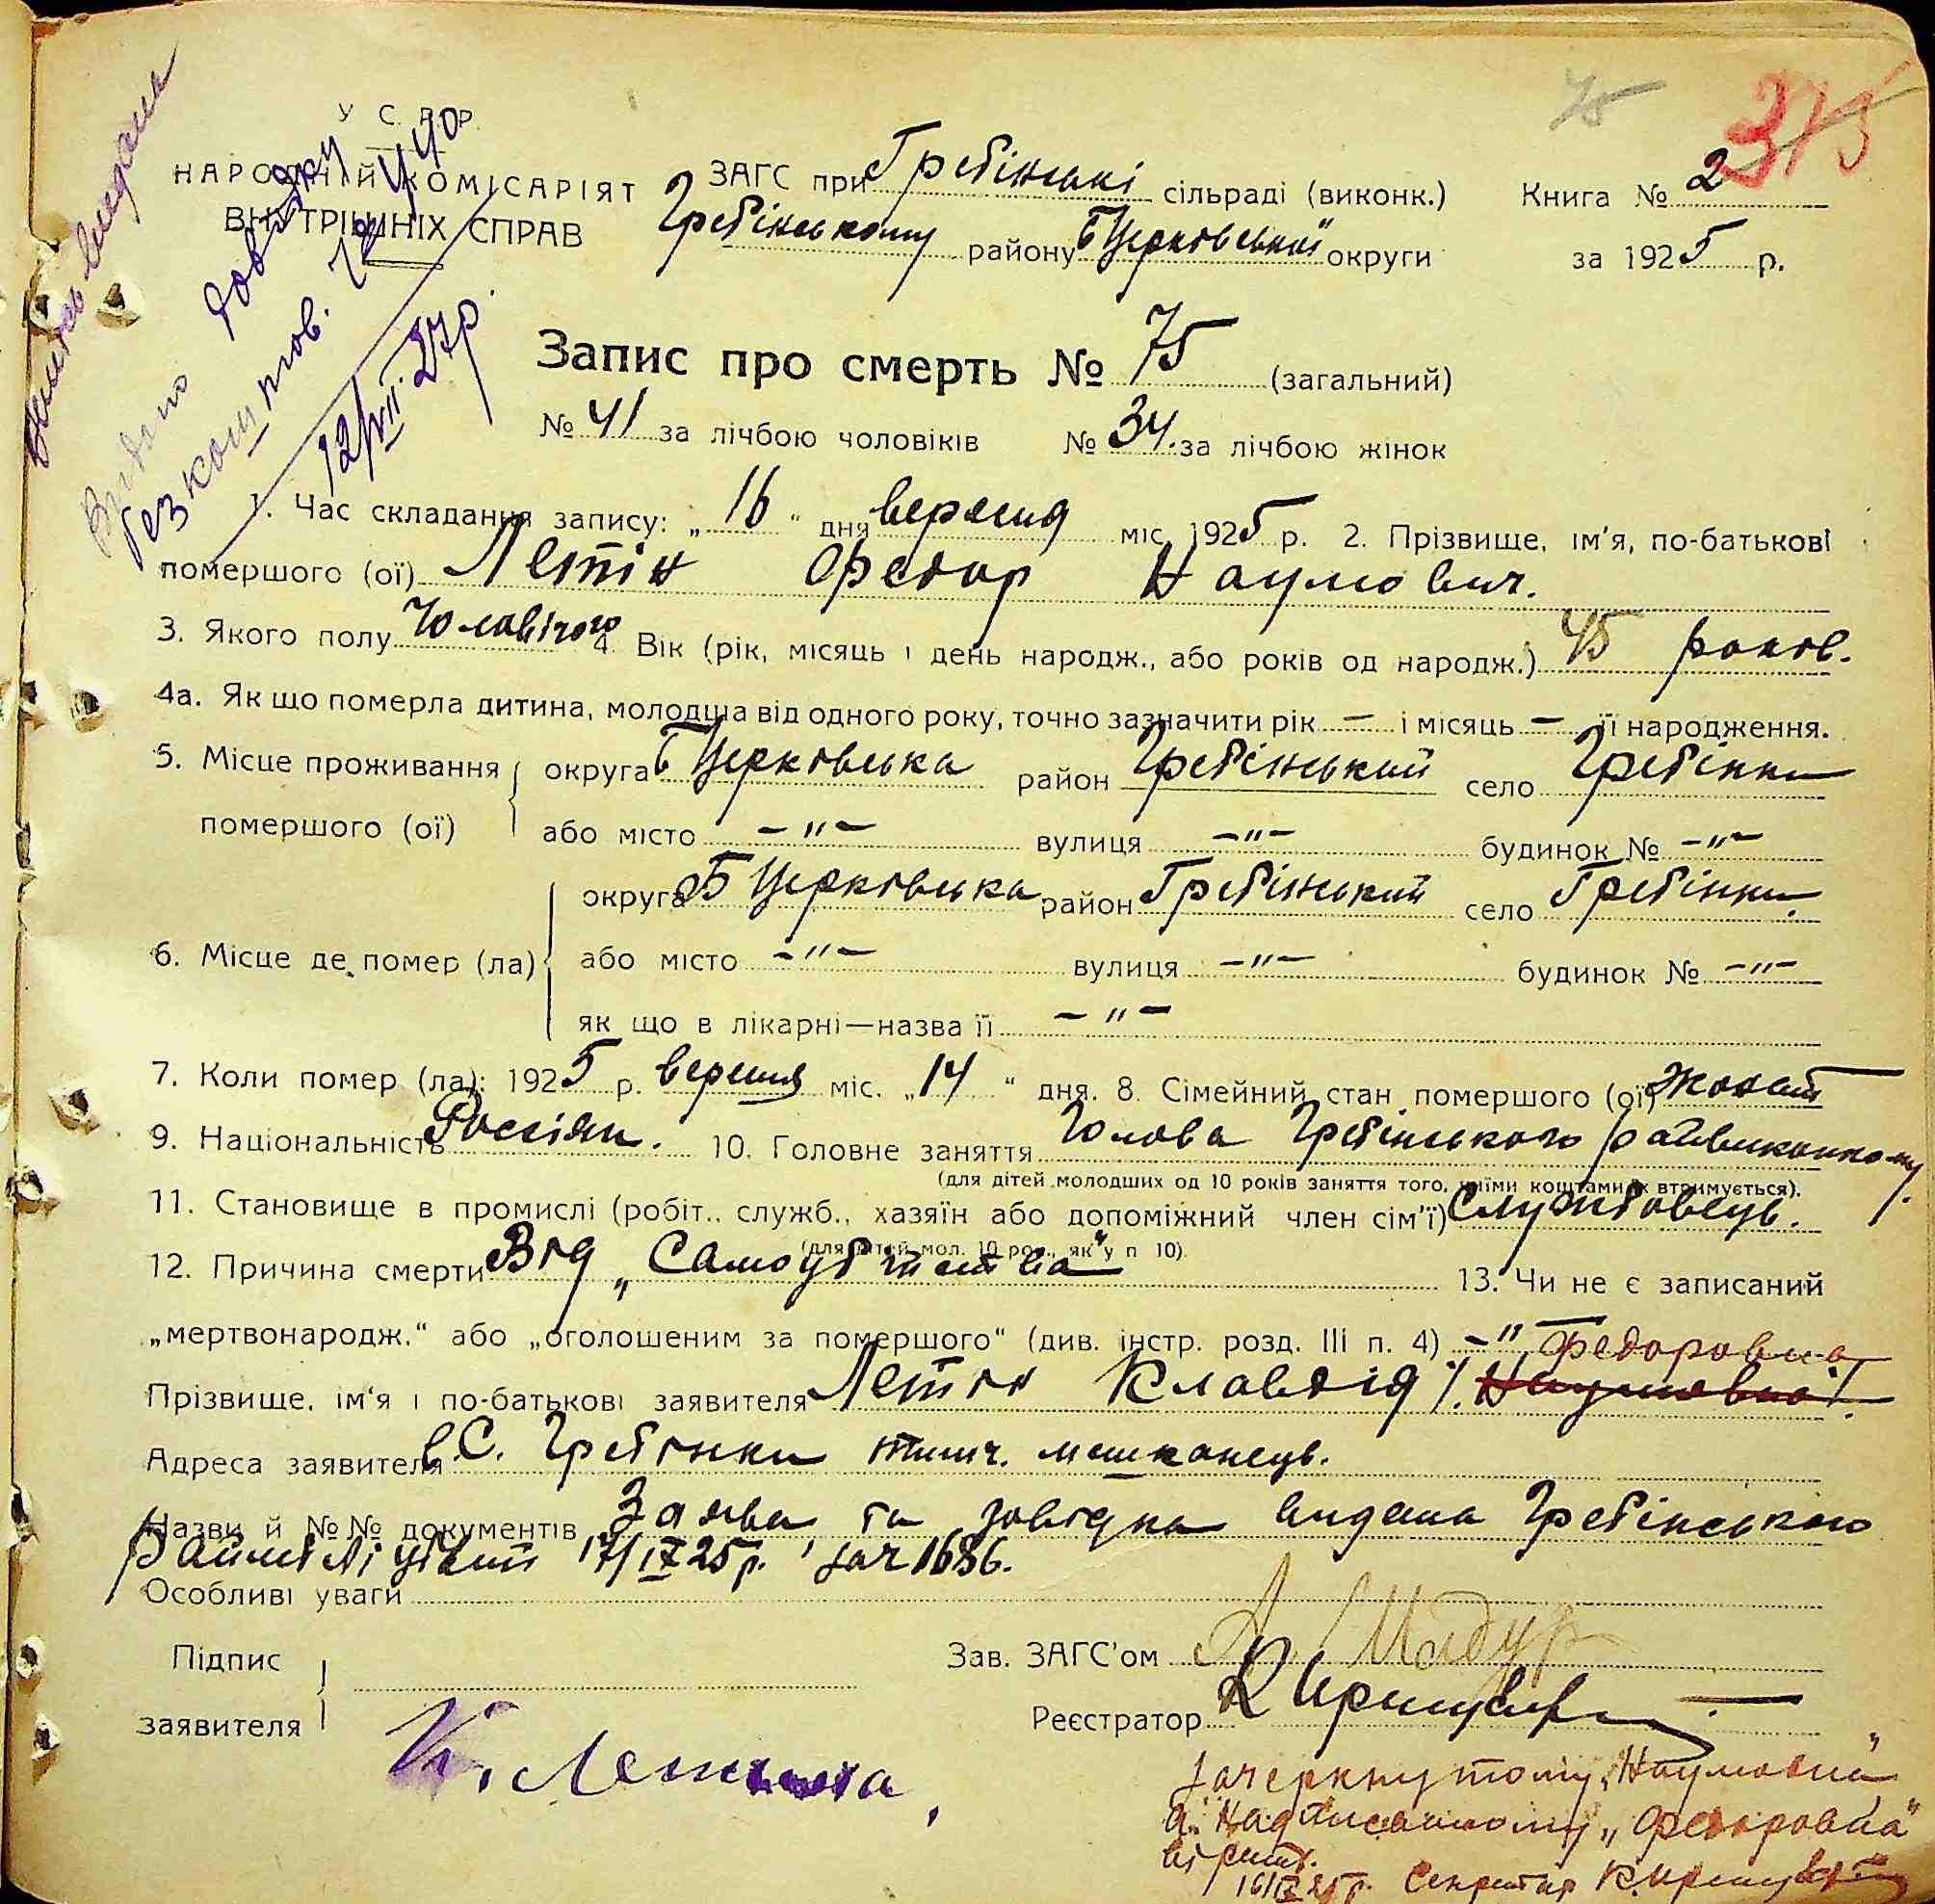 75 315
У. С. Р. Р.
НАРОДНІЙ КОМІСАРІЯТ
ВНУТРІШНІХ СПРАВ
Видано довідку
безкоштов.
12/VII 27р.
ЗАГС при Гребінські сільраді (виконк.) Книга № 2
Гребінському району БЦерковської округи за 1925 р.
Запис про смерть № 75 (загальний)
№ 41 за лічбою чоловіків № 34 за лічбою жінок
1. Час складання запису: „16“ дня вересня міс. 1925 р. 2. Прізвище, ім'я, по-батькові
помершого (ої) Летін Федор Наумович.
3. Якого полу Чоловічого 4. Вік (рік, місяць і день народж., або років од народж.) 45 років.
4а. Як що померла дитина, молодша від одного року, точно зазначити рік — і місяць — її народження.
5. Місце проживання округа БЦерковська район Гребінський село Гребінки
помершого (ої) або місто –"– вулиця –"– будинок № –"–
округа БЦерковська район Гребінський село Гребінки.
6. Місце де помер (ла) або місто –"– вулиця –"– будинок № –"–
як що в лікарні—назва її –"–
7. Коли помер (ла): 1925 р. вересня міс. „14“ дня. 8. Сімейний стан помершого (ої) жонат
9. Національність Россіян. 10. Головне заняття Голова Гребінського райвиконкому.
(для дітей молодших од 10 років заняття того, чиїми коштами їх втримується).
11. Становище в промислі (робіт., служб., хазяїн або допоміжний член сім'ї) Службовець.
(для дітей мол. 10 рок., як у п 10).
12. Причина смерти Від „Самоубийства“ 13. Чи не є записаний
„мертвонародж.“ або „оголошеним за помершого“ (див. інстр. розд. III п. 4) –"– Федоровна
Прізвище, ім'я і по-батькові заявителя Летін Клавдія Наумовна
Адреса заявителя в С. Гребінки тимч. мешканець.
Назви й №№ документів Заява та довідка видана Гребінською
Райміліцією 17/IX 25р. зач 1686.
Особливі уваги
Підпис Зав. ЗАГС'ом
заявителя Реєстратор
К. Летина
зачеркнутому „Наумовна“
а надписаному „Федоровна“
вірить.
16/IX 25р. Секретар